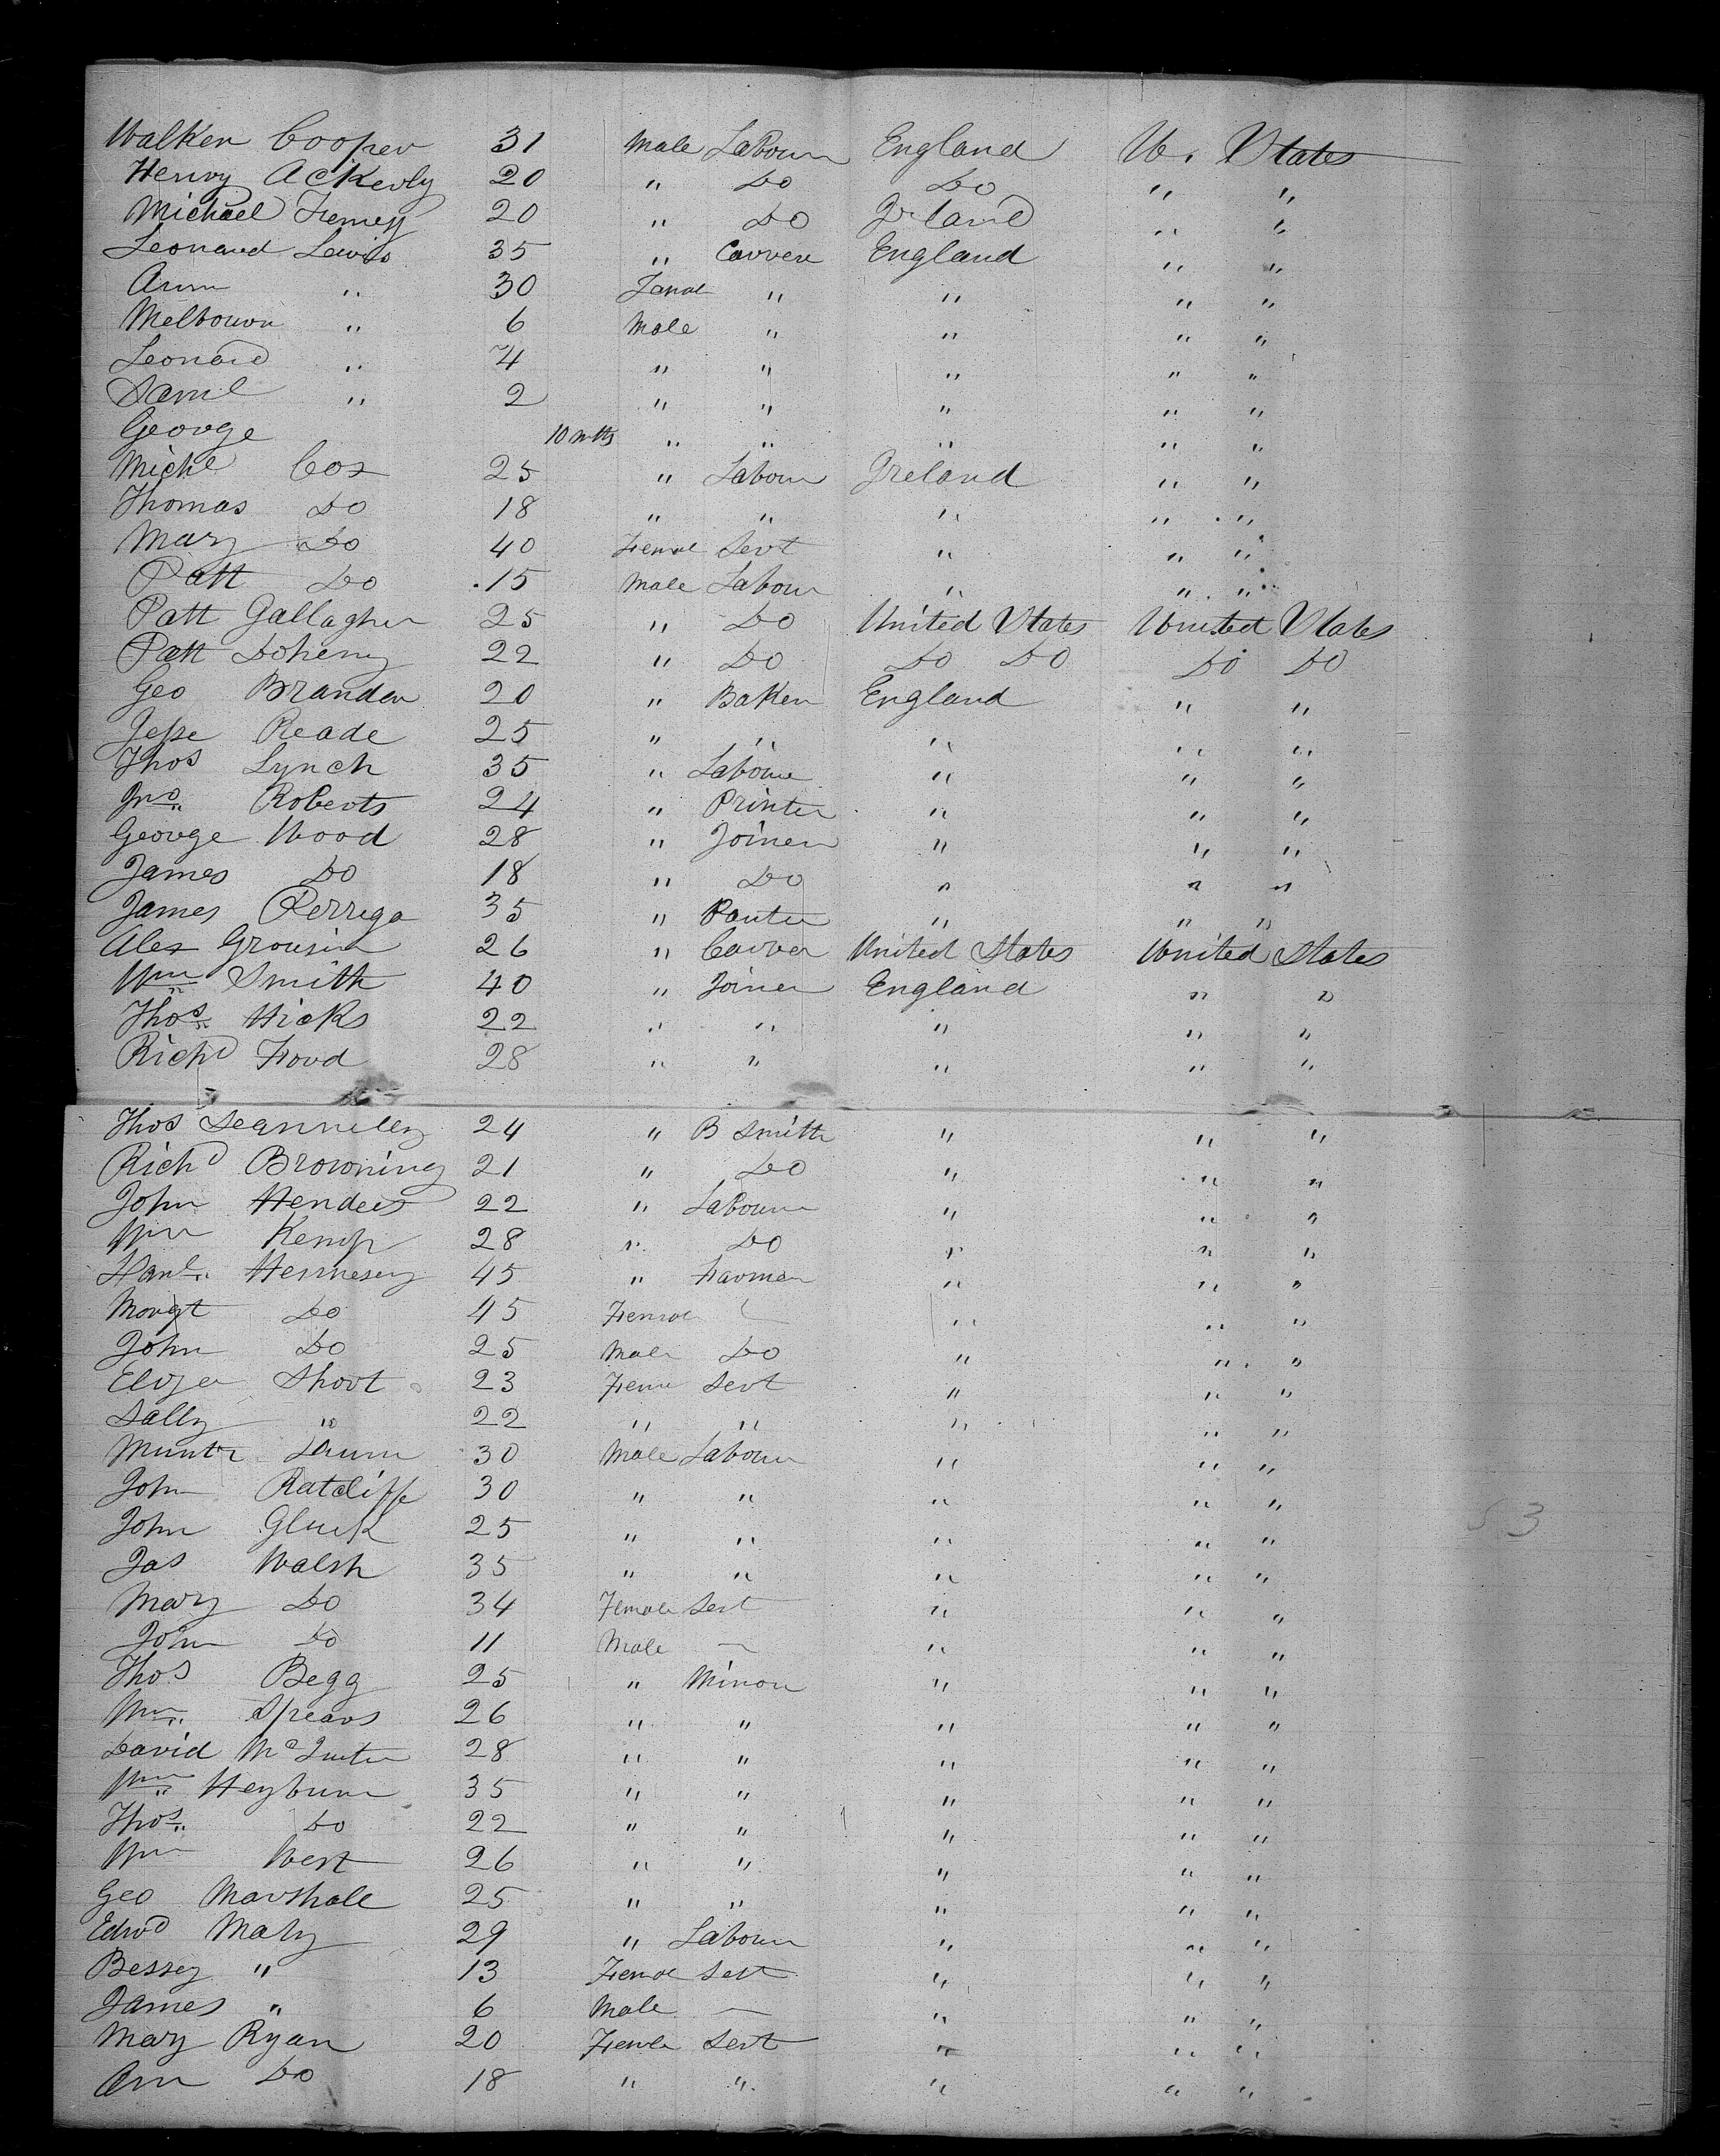 Walker Cooper 31 Male Labourer England U. States
Henry Ackerly 20 " Do Do " "
Michael Feeney 20 " Do Ireland " "
Leonard Lewis 35 " Carver England " "
Ann " 30 Femal " " " "
Melbourn " 6 Male " " " "
Leonard " 4 " " " " "
Saml " 2 " " " " "
George 10 mths " " " " "
Michl Cox 25 " Labour Ireland " "
Thomas Do 18 " " " " "
Mary Do 40 Femal Servt " " "
Patt Do 15 Male Labour " " "
Patt Gallagher 25 " Do United States United States
Patt Doheny 22 " Do Do Do Do Do
Geo Brander 20 " Baker England " "
Jesse Reade 25 " " " " "
Thos Lynch 35 " Labour " " "
Jno Roberts 24 " Printer " " "
George Wood 28 " Joiner " " "
James Do 18 " Do " " "
James Perrega 35 " " " "
Alex 26 " Carver United States United States
Wm Smith 40 " Joiner England " "
Thos Hicks 22 " " " " "
Richd Foord 28 " " " " "
Thos 24 " B Smith " " "
Richd Browning 21 " Do " " "
John 22 " Labour " " "
Wm Kemp 28 " Do " " "
Danl Hennesey 45 " Farmer " " "
Margt Do 45 Femal " " "
John Do 25 Male Do " " "
Eliza Short 23 Fem Servt " " "
Sally " 22 " " " " "
30 Male Labour " " "
John Ratcliffe 30 " " " " "
John Gluck 25 " " " " "
Jas Walsh 35 " " " " "
Mary Do 34 Female Sert " " "
John Do 11 Male — " " "
Thos Begg 25 " Minor " " "
Wm Spears 26 " " " " "
David 28 " " " " "
Wm Heyburn 35 " " " " "
Thos Do 22 " " " " "
Wm West 26 " " " " "
Geo Marshall 25 " " " " "
Edwd Maly 29 " Labour " " "
Bessey " 13 Femal Sert " " "
James " 6 Male — " " "
Mary Ryan 20 Femle Sert " " "
Ann Do 18 " " " " "
53